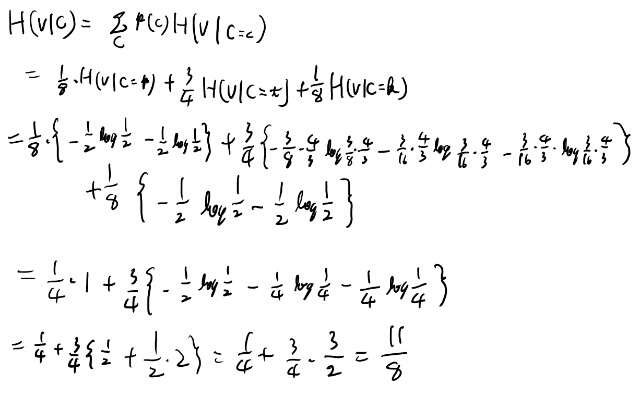 H(V|C) = Σ_C p(c) H(V | C=c)
= 1/8 · H(V|C=p) + 3/4 H(V|C=t) + 1/8 H(V|C=k)
= 1/8 · { - 1/2 log 1/2 - 1/2 log 1/2 } + 3/4 { - 3/8 · 4/3 log 3/8 · 4/3 - 3/16 · 4/3 log 3/16 · 4/3 - 3/16 · 4/3 · log 3/16 · 4/3 }
+ 1/8 { - 1/2 log 1/2 - 1/2 log 1/2 }
= 1/4 · 1 + 3/4 { - 1/2 log 1/2 - 1/4 log 1/4 - 1/4 log 1/4 }
= 1/4 + 3/4 { 1/2 + 1/2 · 2 } = 1/4 + 3/4 · 3/2 = 11/8